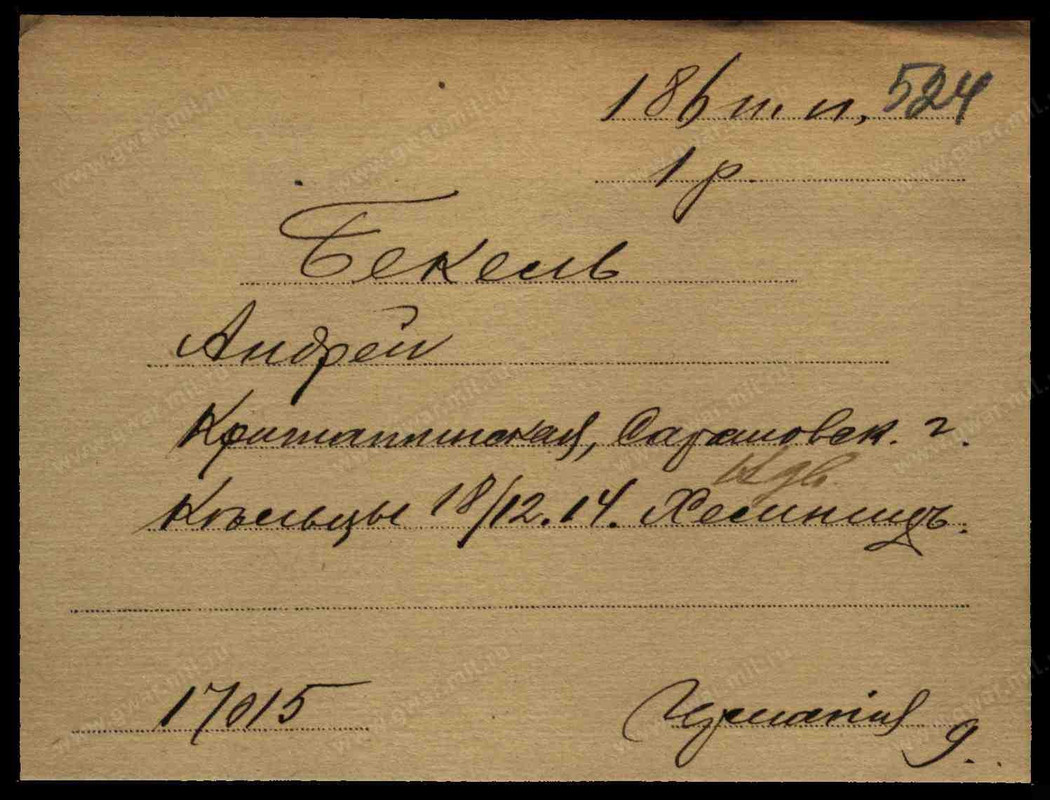 186 п. п, 524
1 р.
Бекель
Андрей
Саратовск. г.
Кѣельцы 18/12.14. Хемницъ.
17015
Германія
9.
www.gwar.mil.ru